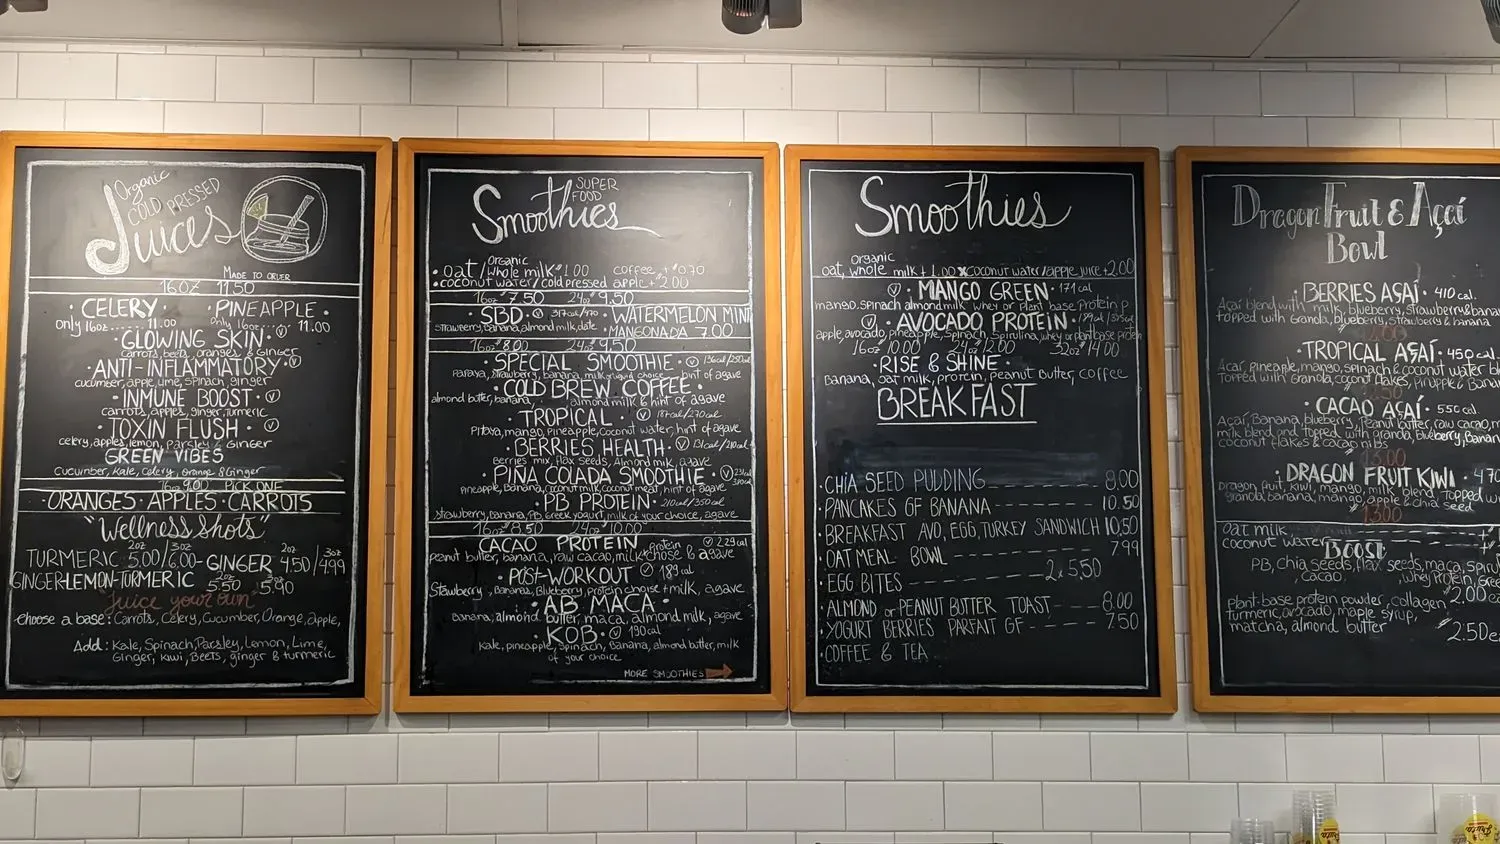 Organic
COLD PRESSED
Juices
MADE TO ORDER
16oz 11.50
· CELERY · PINEAPPLE ·
only 16oz ........ 11.00 only 16oz ... 11.00
· GLOWING SKIN · V
carrots, beets, oranges & GINGER
· ANTI-INFLAMMATORY · V
cucumber, apple, lime, spinach, ginger
· INMUNE BOOST · V
carrots, apples, ginger, turmeric
· TOXIN FLUSH · V
celery, apples, lemon, parsley & GINGER
GREEN VIBES
cucumber, kale, celery, orange & Ginger
16oz 9.00 PICK ONE
· ORANGES · APPLES · CARROTS
"Wellness Shots"
2oz 3oz 2oz 3oz
TURMERIC 5.00/6.00 - GINGER 4.50/4.99
GINGER-LEMON-TURMERIC 5.50 5.90
"Juice your own"
choose a base: Carrots, Celery, Cucumber, Orange, apple,
Add: Kale, Spinach, Parsley, Lemon, Lime,
Ginger, Kiwi, Beets, ginger & turmeric
SUPER
FOOD
Smoothies
Organic
· oat / Whole milk $1.00 coffee + $0.70
· coconut water / cold pressed apple + $2.00
16oz $7.50 24oz $9.50
· SBD · V WATERMELON MINT
strawberry, banana, almond milk, date MANGONADA 7.00
16oz $8.00 24oz $9.50
· SPECIAL SMOOTHIE · V
Papaya, strawberry, banana, milk your choice, hint of agave
· COLD BREW COFFEE ·
almond butter, banana, almond milk & hint of agave
TROPICAL · V 187cal/270cal
Pitaya, mango, pineapple, coconut water, hint of agave
· BERRIES HEALTH · V
berries mix, flax seeds, Almond milk, agave
· PIÑA COLADA SMOOTHIE · V
pineapple, Banana, coconut milk, coconut meat, hint of agave
PB PROTEIN · 210cal/350cal
strawberry, banana, PB, Greek yogurt, milk of your choice, agave
16oz $8.50 24oz $10.00
CACAO PROTEIN V 229cal
peanut butter, banana, raw cacao, milk chose & agave protein
· POST-WORKOUT V 189cal
Stawberry, Bananas, Blueberry, protein choise + milk, agave
· AB MACA ·
Banana, almond butter, maca, almond milk, agave
· KOB · V 190cal
Kale, pineapple, spinach, Banana, almond butter, milk
of your choice
MORE SMOOTHIES
Smoothies
Organic
oat, whole milk + 1.00 x coconut water / apple juice + 2.00
V · MANGO GREEN · 171 cal
mango, spinach almond milk whey or Plant base Protein P
V · AVOCADO PROTEIN ·
apple, avocado, pineapple, Spinach, Spirulina, whey or plant base protein
16oz 10.00 24oz 12.00 32oz $14.00
· RISE & SHINE ·
Banana, oat milk, protein, peanut Butter, coffee
BREAKFAST
· CHIA SEED PUDDING 8.00
· PANCAKES GF BANANA 10.50
· BREAKFAST AVO, EGG, TURKEY SANDWICH 10.50
· OATMEAL BOWL 7.99
· EGG BITES 2x5.50
· ALMOND or PEANUT BUTTER TOAST 8.00
· YOGURT BERRIES PARFAIT GF 7.50
· COFFEE & TEA
Dragon Fruit & Açaí
Bowl
· BERRIES AÇAÍ · 410 cal.
Açaí blend with milk, blueberry, strawberry & banana
topped with Granola, blueberry, strawberry & banana
· TROPICAL AÇAÍ · 450 cal.
Açaí, pineapple, mango, spinach & coconut water bl
Topped with Granola, coconut flakes, pineapple & Banana
· CACAO AÇAÍ · 550 cal.
Açaí, Banana, blueberry, Peanut butter, raw cacao, m
milk blend and topped with granola, blueberry, Banana
coconut flakes & cacao nibs
13.00
· DRAGON FRUIT KIWI · 470
Dragon fruit, kiwi, mango, milk blend, topped wit
granola, banana, mango, apple & chia seed
13.00
oat milk,
coconut water
Boost
PB, chia seeds, flax seeds, maca, Spirul
cacao, whey Protein, Gree
2.00 ea
plant base protein powder, collagen
turmeric, avocado, maple syrup,
matcha, almond butter
2.50 ea